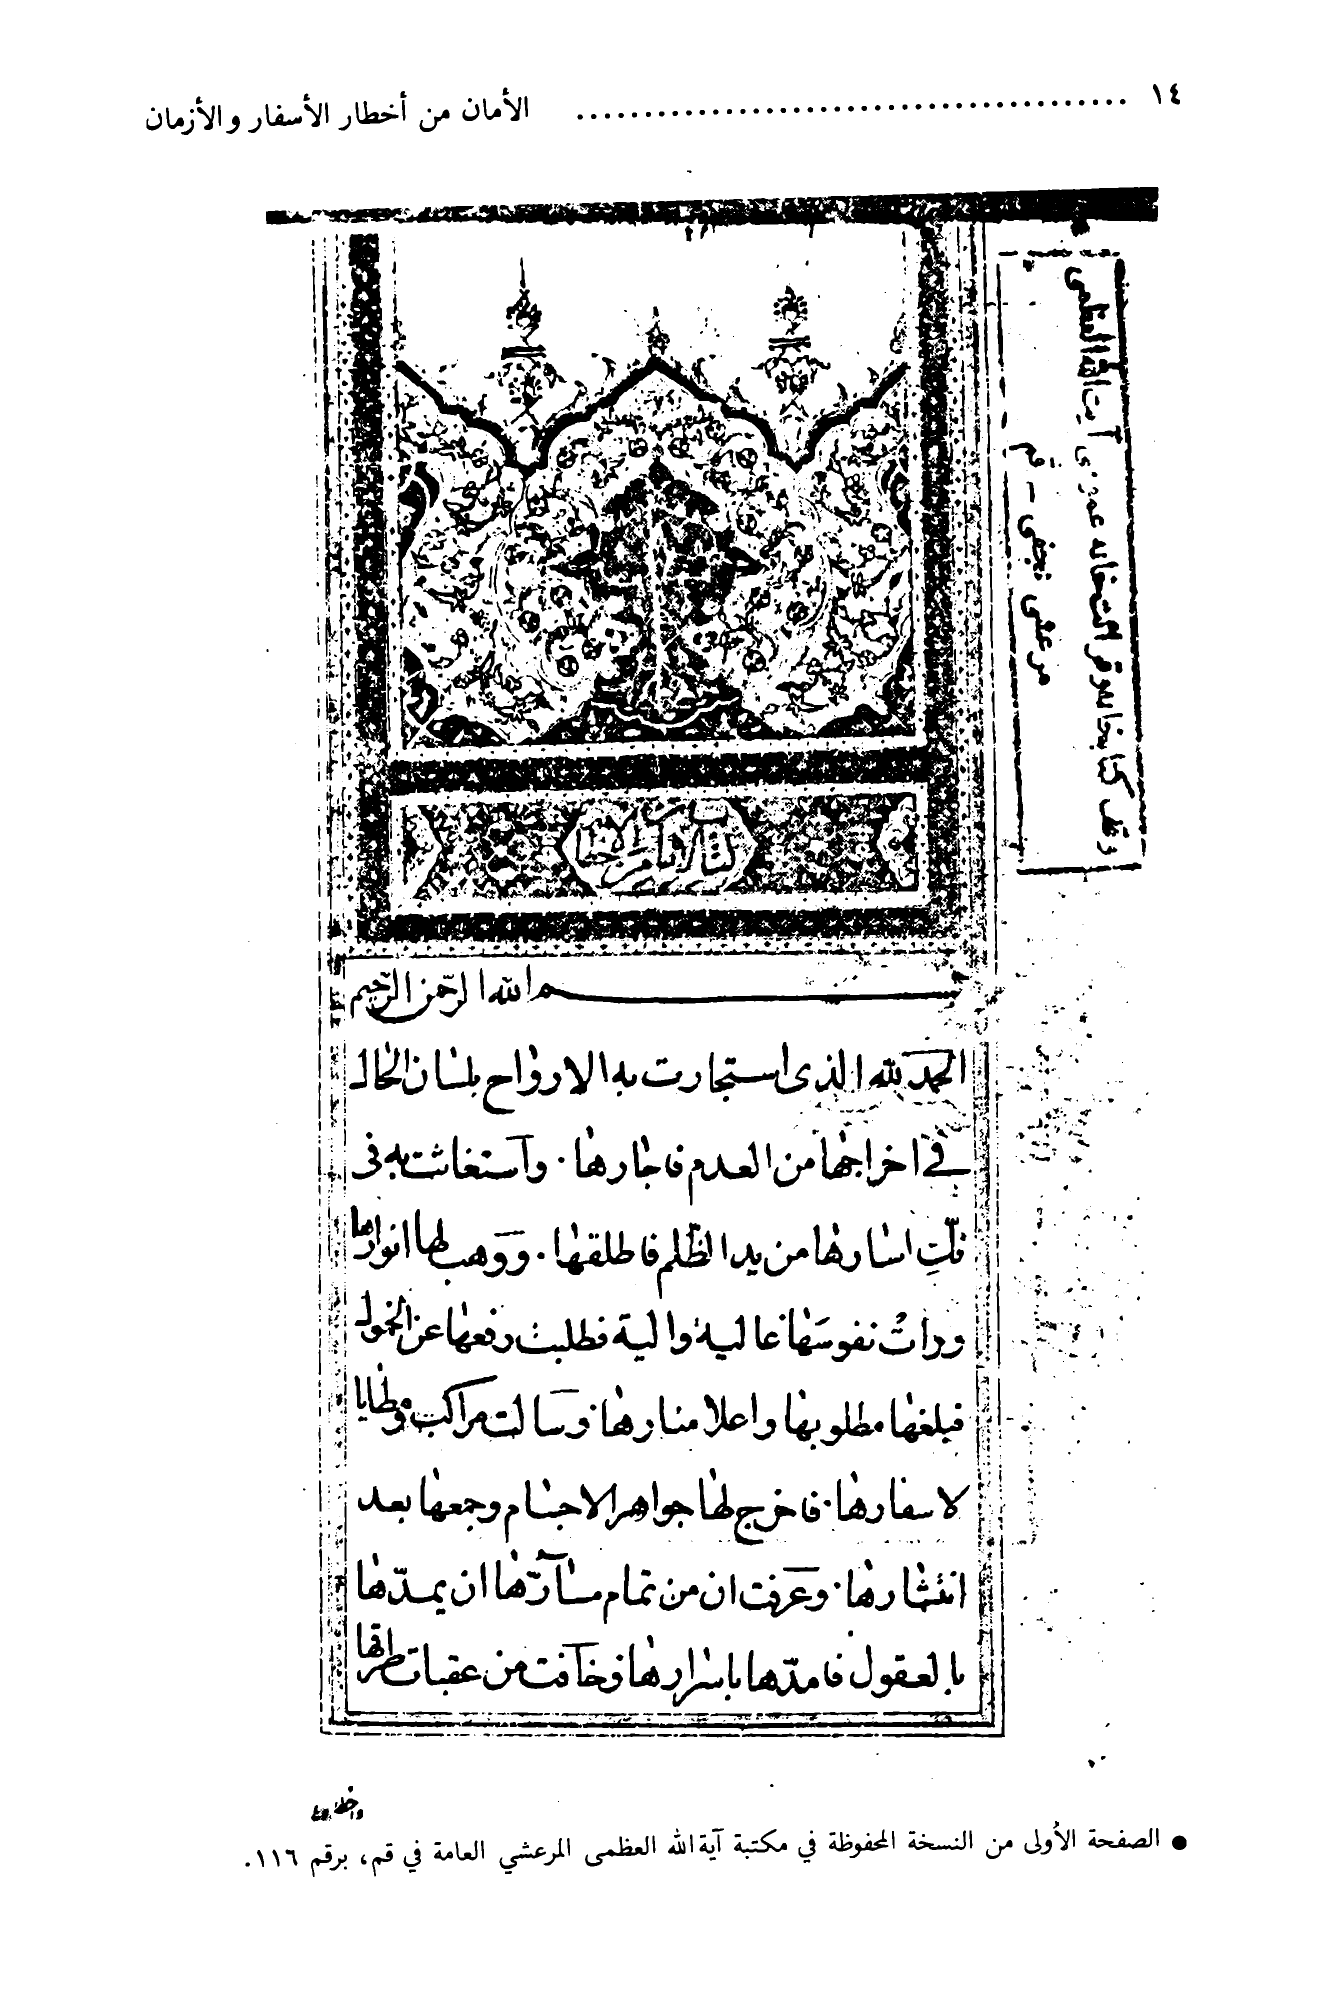 ١٤ ........................................ الأمان من أخطار الأسفار والأزمان
وقف كتابخانه وقرائتخانه عمومى آيت الله العظمى
مرعشى نجفى - قم
كتاب الامان من اخطار
بسم الله الرحمن الرحيم
الحمد لله الذى استجارت به الارواح بلسان الحال
فى اخراجها من العدم فاجارها . واستغاثت به فى
فكّ اسارها من يد الظلم فاطلقها . ووهب لها انوارها
ورات نفوسَها عالية والية فطلبت رفعها عن الخمول
فبلغها مطلوبها واعلا منارها . وسالت مراكب ومطايا
لاسفارها . فاخرج لها جواهر الاجسام وجمعها بعد
انتشارها . وعرفت ان من تمام مسآرّها ان يمدّها
بالعقول فامدّها باسرارها وخافت من عقبات طرقها
واخطارها
● الصفحة الأولى من النسخة المحفوظة في مكتبة آية الله العظمى المرعشي العامة في قم، برقم ١١٦.